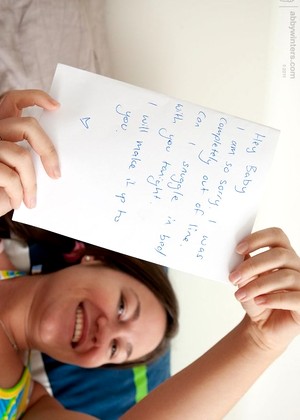 abbywinters.com
Hey Baby
I am so sorry I was
completely out of line.
Can I snuggle in bed
with you tonight.
I will make it up to
you.